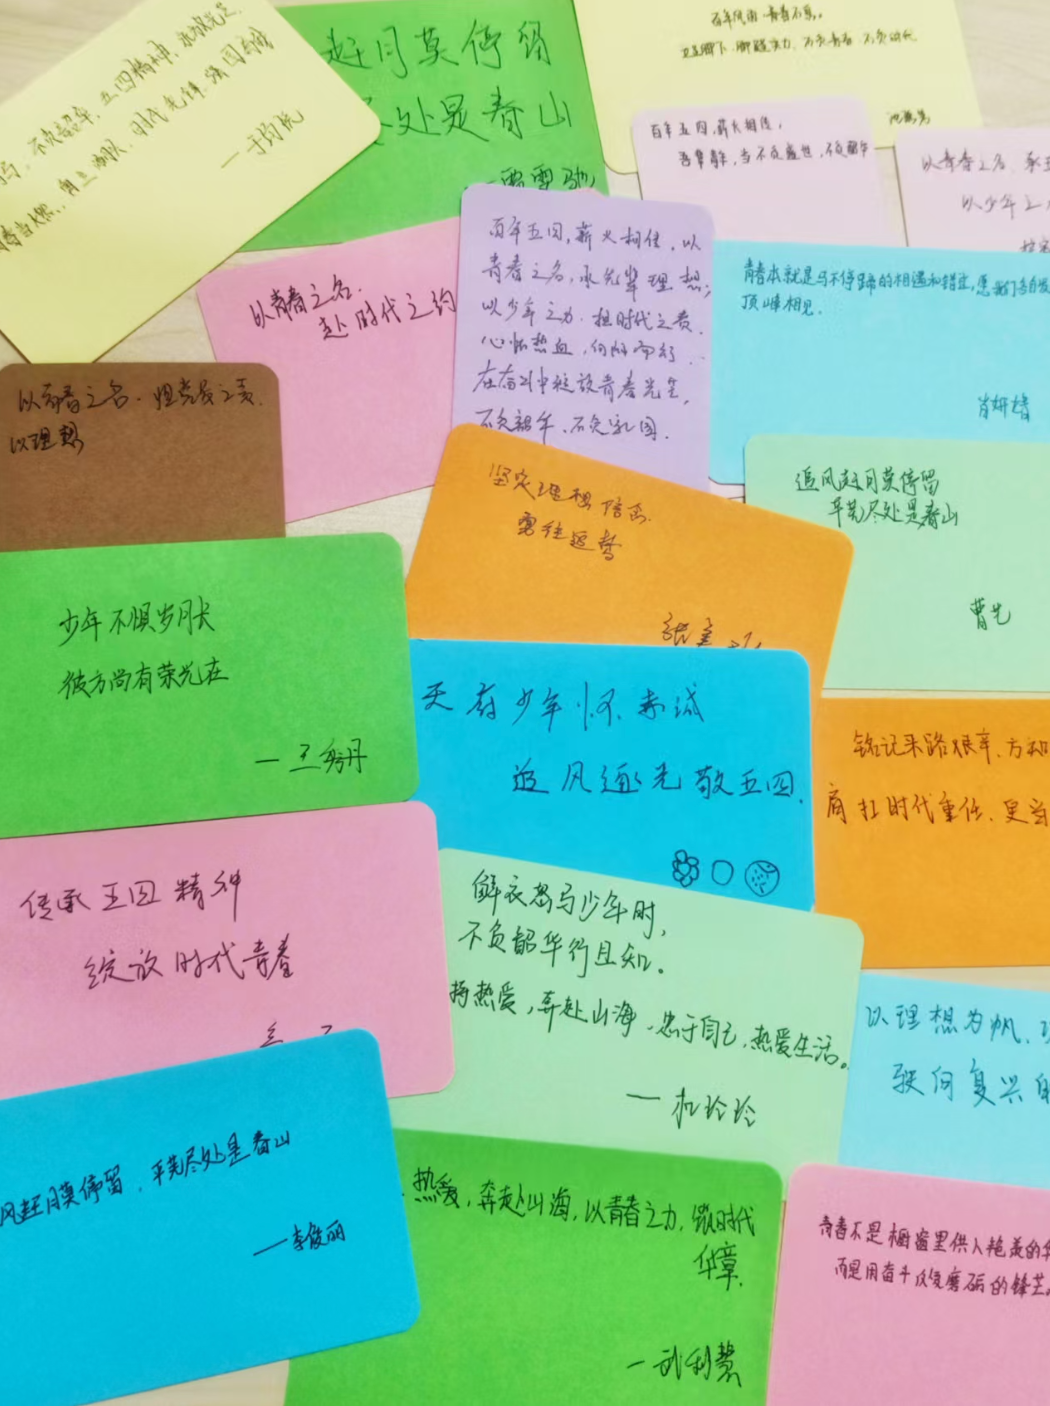 不负韶华，五四精神，永放光芒
时代先锋，强国有我
赶月莫停留
处是春山
百年风雨 青春不息。
百年五四，薪火相传，
吾辈青年，当不负盛世，不负韶华
以青春之名，承五
以少年之
以青春之名，
赴时代之约
百年五四，薪火相传，以
青春之名，承先辈理想，
以少年之力，担时代之责。
心怀热血，向阳而行，
在奋斗中绽放青春光芒，
不负韶华，不负家国。
青春本就是马不停蹄的相遇和错过，愿我们各自
顶峰相见。
肖妍婧
以青春之名，担
以理想
坚定理想信念
勇往起航
追风赶月莫停留
平芜尽处是春山
曹艺
少年不惧岁月长
彼方尚有荣光在
—王秀丹
天府少年怀赤诚
追风逐光敬五四.
铭记来路艰辛、方知
肩扛时代重任、更当
传承五四精神
绽放时代青春
鲜衣怒马少年时，
不负韶华行且知。
持热爱，奔赴山海，忠于自己，热爱生活。
玲玲
以理想为帆、
驶向复兴的
风赶月莫停留，平芜尽处是春山
—李俊丽
热爱，奔赴山海，以青春之力，谱时代
华章.
—武利慧
青春不是橱窗里供人艳羡的华
而是用奋斗反复磨砺的锋芒。